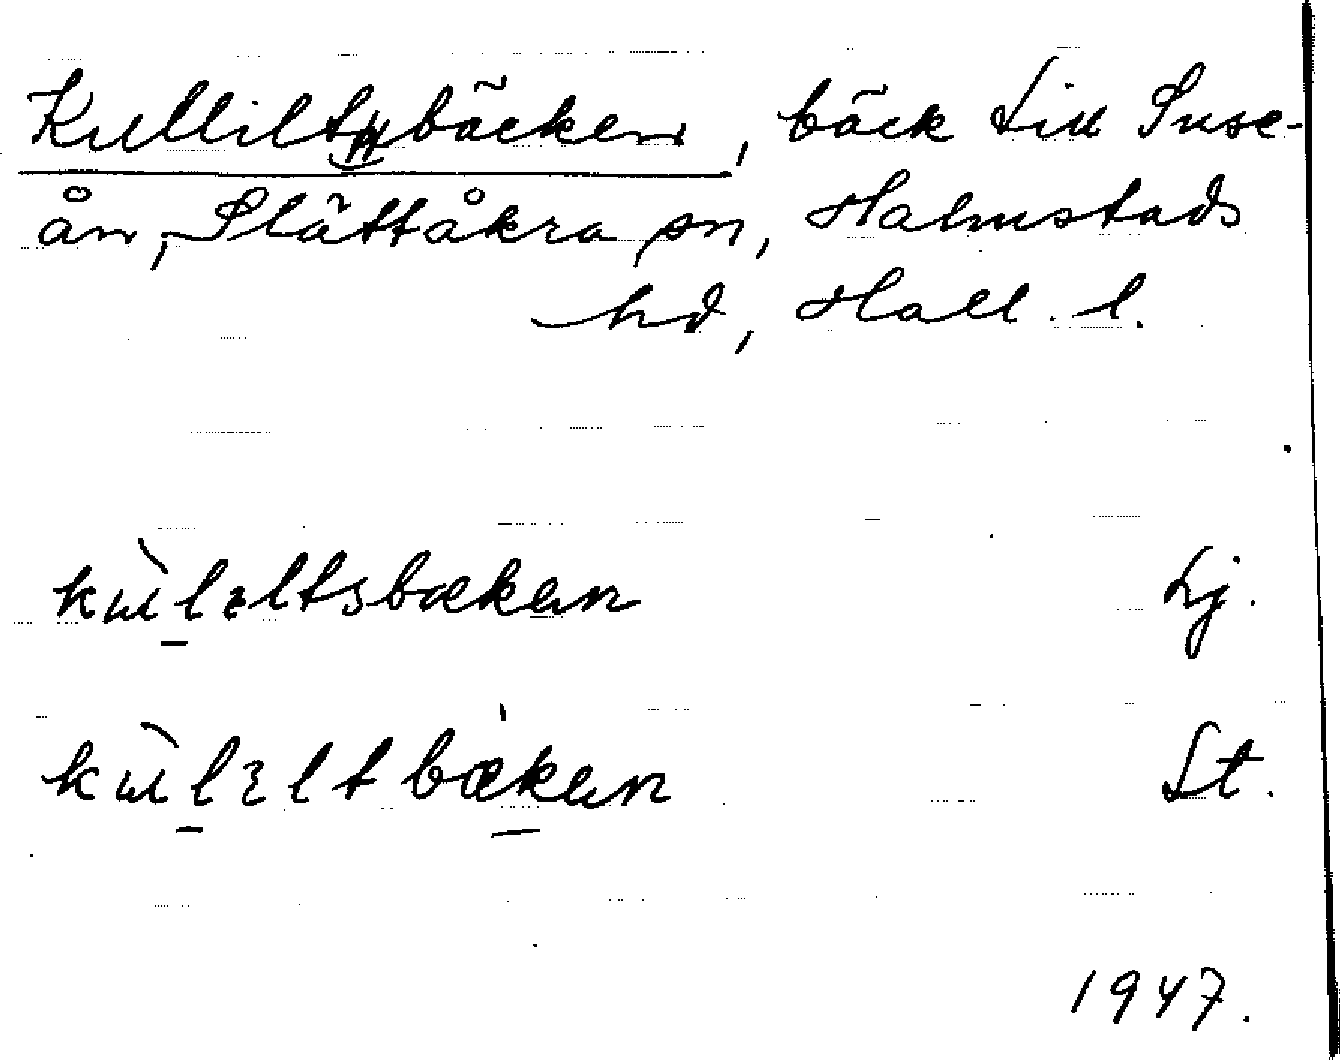 Kulliltbäcken, bäck till Suse-
ån, Slättåkra sn, Halmstads
hd, Hall. l.
kùlıltsbækan Lj.
kùlıltbækan St.
1947.